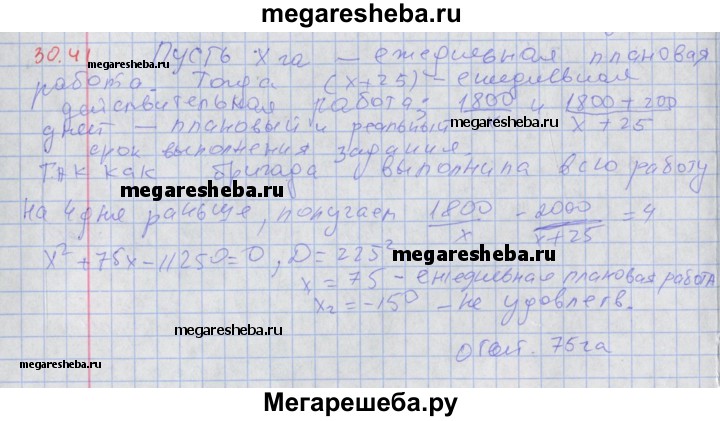 megaresheba.ru
30.41 Пусть х га — ежедневная плановая
megaresheba.ru
работа. Тогда (х+25) - ежедневная
действительная работа; 1800/x и 1800+200/x+25
megaresheba.ru megaresheba.ru
дней — плановый и реальный
срок выполнения задания.
Так как бригада выполнила всю работу
megaresheba.ru
на 4 дня раньше, получаем 1800/x - 2000/x+25 = 4
megaresheba.ru
x² + 75x - 11250 = 0, D = 225²
megaresheba.ru
x = 75 - ежедневная плановая работа
x₂ = -150 - не удовлетв.
megaresheba.ru
Ответ. 75га
megaresheba.ru megaresheba.ru
Мегарешеба.ру